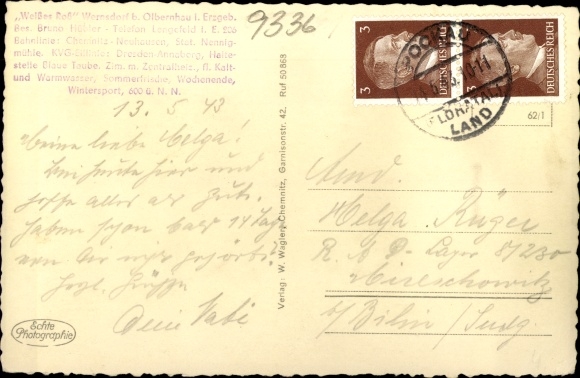 „Weißes Roß" Wernsdorf b. Olbernhau i. Erzgeb.
Bes. Bruno Hübler - Telefon Lengefeld i. E. 206
Bahnlinie: Chemnitz-Neuhausen, Stat. Nennig-
mühle. KVG-Bildlinie Dresden-Annaberg, Halte-
stelle Blaue Taube. Zim. m. Zentralheiz., fl. Kalt-
und Warmwasser, Sommerfrische, Wochenende,
Wintersport, 600 ü. N. N.
9336
3
DEUTSCHES REICH
3
DEUTSCHES REICH
LAND
62/1
13.5.43
Meine liebe Helga!
Bin heute hier und
hoffe alles
haben schon bald 14 Tage
von Dir nix gehört.
Herzl. Grüße
Dein Vati
Echte
Photographie
Verlag: W. Wagler, Chemnitz, Garnisonstr. 42. Ruf 50868
Helga Rüger
R. A. D - Lager 8/230
Mireschowitz
b/Bilin / Sudg.